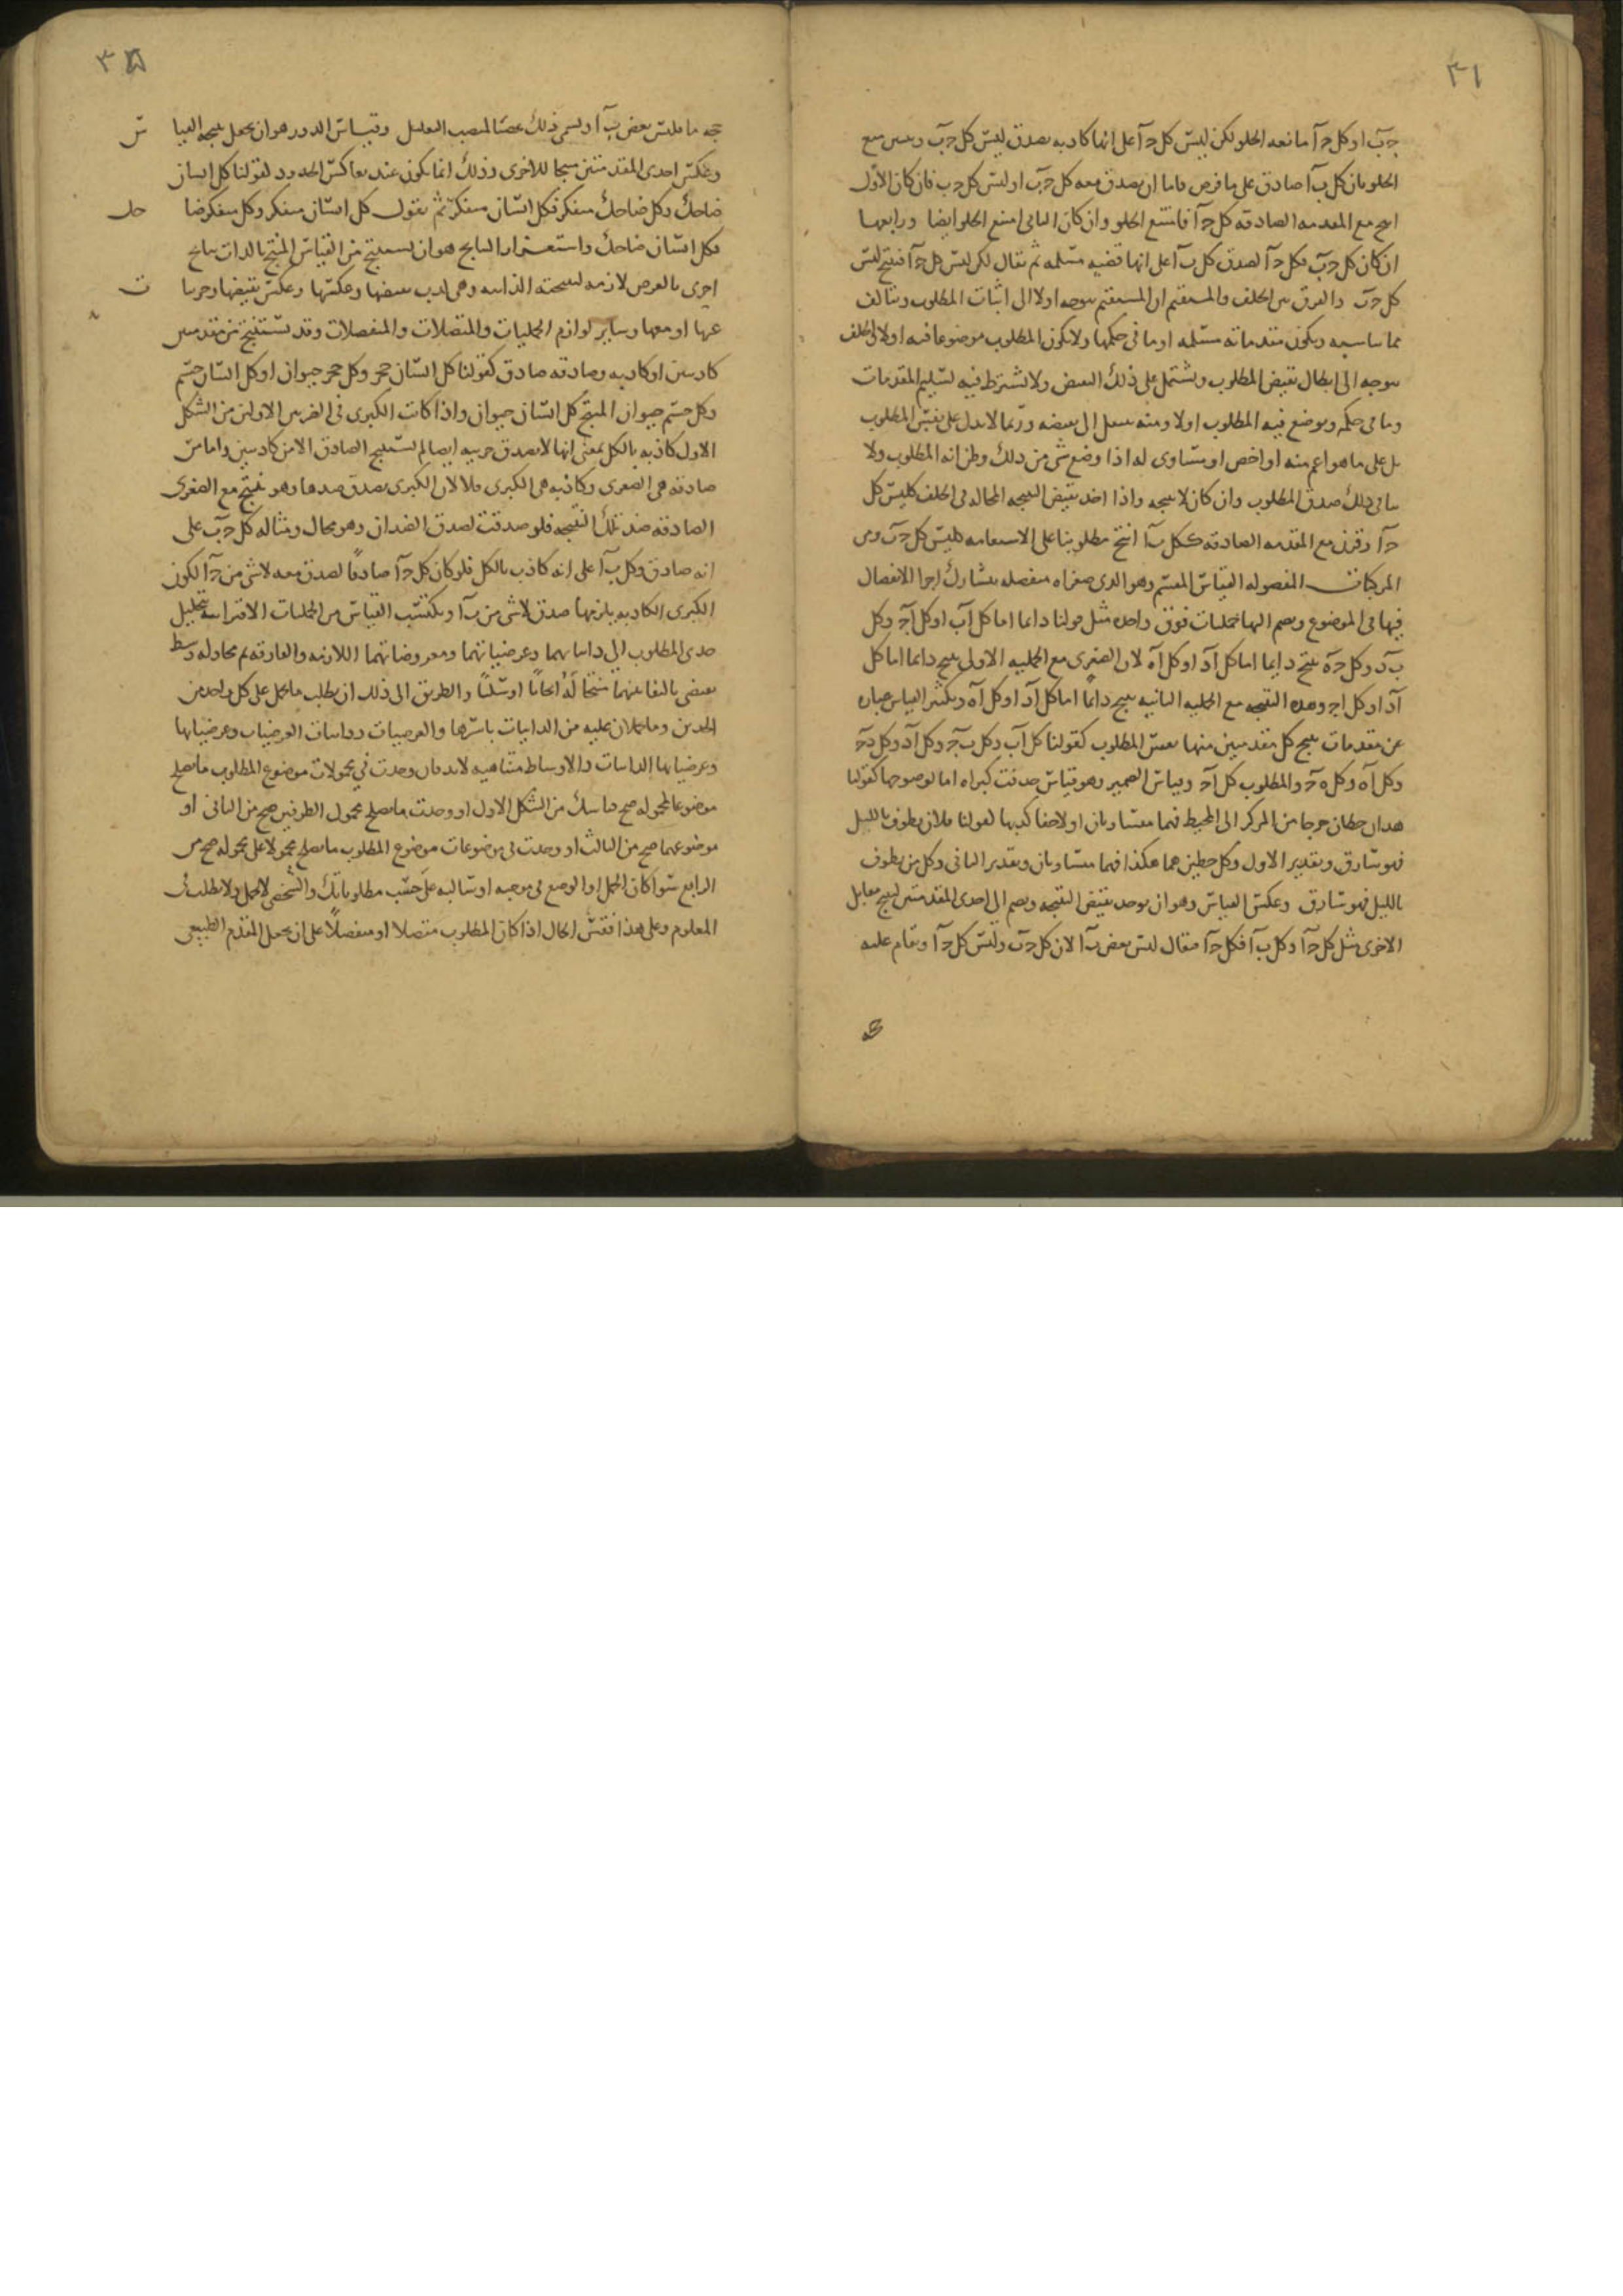 ٣١
جـ ب او كل جـ ا مانعه الخلو لكن ليس كل جـ ا على انها كاذبه يصدق ليس كل جـ ب وسين مع
الخلو بان كل ب ا صادق على ما فرض فاما ان يصدق معه كل جـ ب او ليس كل جـ ب فان كان الاول
انتج مع المقدمه الصادقه كل جـ ا فامتنع الخلو وان كان الثانى امتنع الخلو ايضا ورابعها
ان كان كل جـ ب فكل جـ ا لصدق كل ب ا على انها قضيه مسلمه ثم يقال لكن ليس كل جـ ا فينتج ليس
كل جـ ب والفرق بين الخلف والمستقيم ان المستقيم يتوجه اولا الى اثبات المطلوب ويتالف
مما يناسبه ويكون مقدماته مسلمه او ما فى حكمها ولا يكون المطلوب موضوعا فيه اولا والخلف
يتوجه الى ابطال نقيض المطلوب ويشتمل على ذلك النقيض ولا يشترط فيه تسليم المقدمات
وما فى حكمه ويوضع فيه المطلوب اولا ومنه ينتقل الى نقيضه وربما لا يدل على نفس المطلوب
بل على ما هو اعم منه او اخص او مساوى له اذا وضع شى من ذلك وظن انه المطلوب ولا
ينافى ذلك صدق المطلوب وان كان لا ينتجه واذا اخذ نقيض النتيجه المحاله فى الخلف كليس كل
جـ ا وقرن مع المقدمه الصادقه ككل ب ا انتج مطلوبنا على الاستقامه كليس كل جـ ب ومن
المركبات المفصوله القياس المقسم وهو الذى صغراه منفصله يتشارك اجزا الانفصال
فيها فى الموضوع ويضم اليها حمليات فوق واحده مثل قولنا دايما اما كل ا ب او كل ا جـ وكل
ب د وكل جـ ه ينتج دايما اما كل ا د او كل ا ه لان الصغرى مع الحمليه الاولى ينتج دايما اما كل
ا د او كل ا جـ وهذه النتيجه مع الحمليه الثانيه ينتج دايما اما كل ا د او كل ا ه وتكثير القياس عباره
عن مقدمات ينتج كل مقدمتين منها نفس المطلوب كقولنا كل ا ب وكل ب جـ وكل ا د وكل د جـ
وكل ا ه وكل ه جـ والمطلوب كل ا جـ وقياس الضمير وهو قياس حذفت كبراه اما لوضوحها كقولنا
هذان خطان خرجا من المركز الى المحيط فهما متساويان او لاخفا كذبها كقولنا فلان يطوف بالليل
فهو سارق وتقدير الاول وكل خطين هما هكذا فهما متساويان وتقدير الثانى وكل من يطوف
بالليل فهو سارق وعكس القياس وهو ان يوخذ نقيض النتيجه ويضم الى احدى المقدمتين لينتج مقابل
الاخرى مثل كل جـ ا وكل ب ا فكل جـ ا فيقال ليس بعض ب ا لان كل جـ ب وليس كل جـ ا ويقام عليه
٣
جه ما فليس بعض ب ا ويسمى ذلك غصبا لمنصب التعليل وقياس الدور هو ان يجعل نتيجه القيا س
وعكس احدى المقدمتين منتجا للاخرى وذلك انما يكون عند تعاكس الحدود كقولنا كل انسان
ضاحك وكل ضاحك متفكر فكل انسان متفكر ثم نقول كل انسان متفكر وكل متفكر ضا حك
فكل انسان ضاحك واستقرار النتايج هو ان يستنتج من القياس المنتج بالذات نتايج
اخرى بالعرض لازمه لنتيجته الذاتيه وهى كذب نقيضها وعكسها وعكس نقيضها وجزيا ت
عنها او معها وساير لوازم الحمليات والمتصلات والمنفصلات وقد يستنتج من مقدمتين
كاذبتين او كاذبه وصادقه صادق كقولنا كل انسان حجر وكل حجر حيوان او كل انسان جسم
وكل جسم حيوان المنتج كل انسان حيوان واذا كانت الكبرى فى الضربين الاولين من الشكل
الاول كاذبه بالكل بمعنى انها لا يصدق جزييه ايضا لم يستنتج الصادق الا من كاذبتين واما من
صادقه هى الصغرى وكاذبه هى الكبرى فلا لان الكبرى يصدق ضدها وهو ينتج مع الصغرى
الصادقه ضد تلك النتيجه فلو صدقت لصدق الضدان وهو محال ومثاله كل جـ ب على
انه صادق وكل ب ا على انه كاذب بالكل فلو كان كل جـ ا صادقا لصدق معه لا شى من جـ ا لكون
الكبرى الكاذبه يلزمها صدق لا شى من ب ا ويكتسب القياس من الحمليات الاقترانيه بتحليل
حدى المطلوب الى ذاتياتهما وعرضياتهما ومعروضاتهما اللازمه والمفارقه ثم محاوله وسط
يقتضى بالتفاته بينهما ايجابا او سلبا والطريق الى ذلك ان يطلب ما يحمل على كل واحد من
الحدين وما يحملان عليه من الذاتيات باسرها والعرضيات وذاتيات العرضيات وعرضياتها
وعرضياتها الذاتيات والاوساط متناهيه لا بد فان وجدت فى محمولات موضوع المطلوب ما يصلح
موضوعا لمحموله صح قياسك من الشكل الاول او وجدت ما يصلح محمول الطرفين صح من الثانى او
موضوعهما صح من الثالث او وجدت فى موضوعات موضوع المطلوب ما يصلح محمولا على محموله صح من
الرابع سوا كان الحمل او الوضع فى موجبه او سالبه على حسب مطلوباتك والشخصى لا يحمل ولا يطلب
المعلوم وعلى هذا فقس الحال اذا كان المطلوب متصلا او منفصلا على ان يجعل المقدم الطبيعى